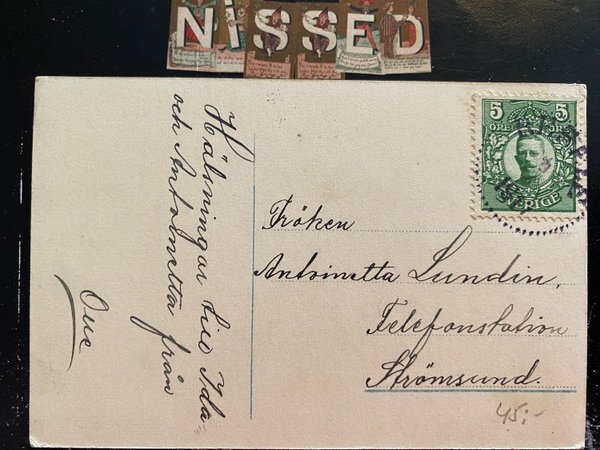 NiSSED
Hälsningar till Ida
och Antoinetta från
5 5
ÖRE ÖRE
SVERIGE
Fröken
Antoinetta Lundin.
Telefonstation
Strömsund.
45:-